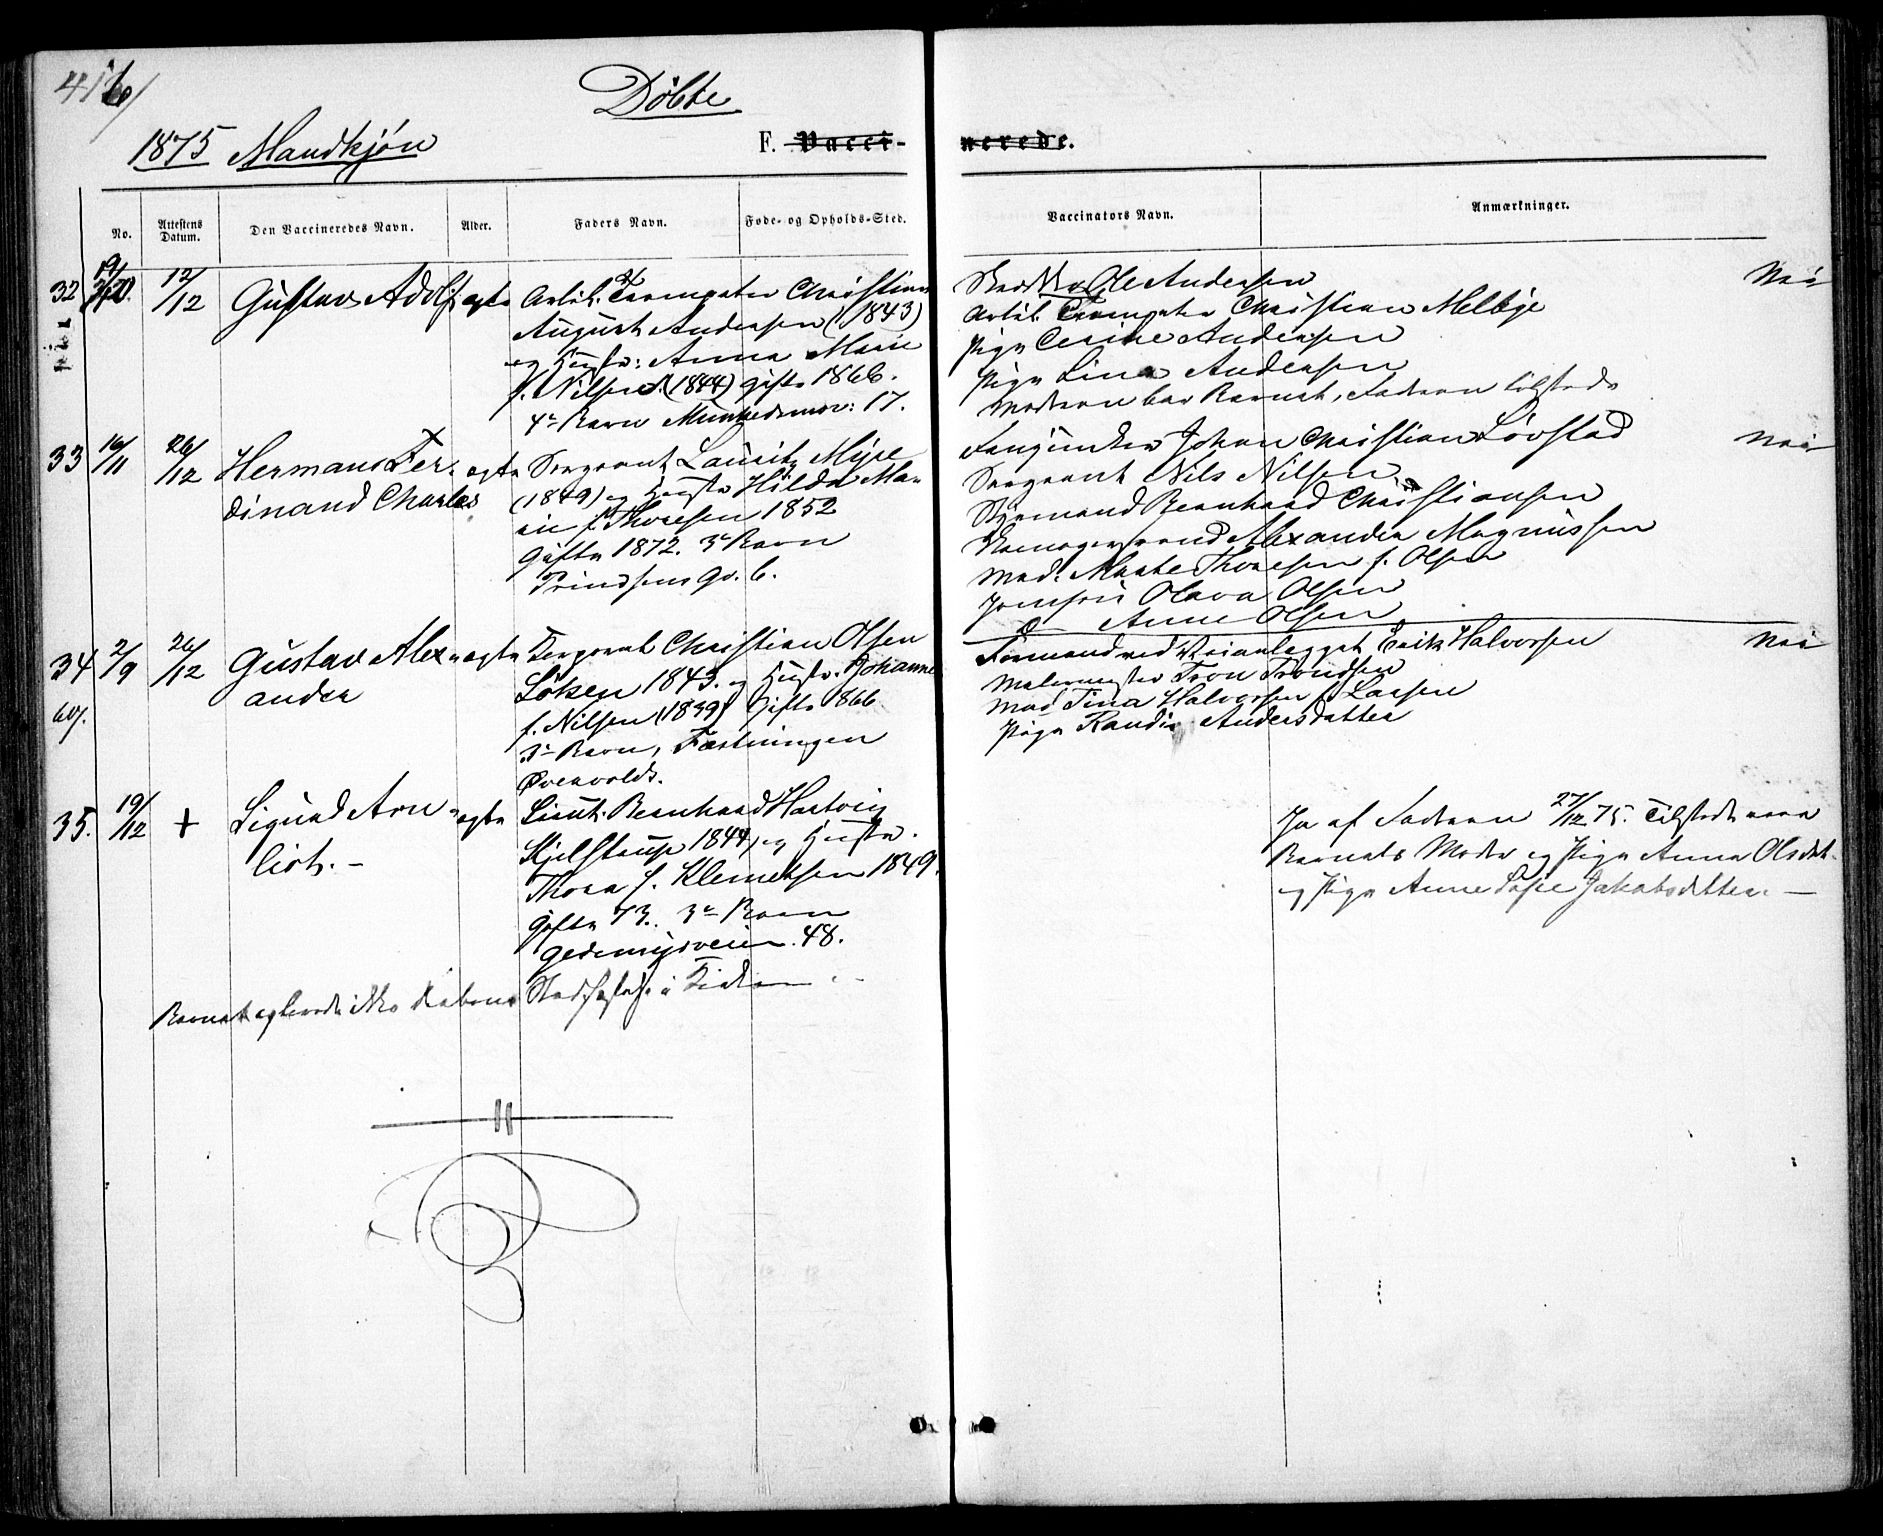 416/
Døbte
1875 Mandkjøn
F. Vacci-
nerede.
No.
Attestens Datum.
Den Vaccineredes Navn.
Alder.
Faders Navn.
Føde- og Opholds-Sted.
Vaccinators Navn.
Anmærkninger.
32
12/12 Gustav Adolf ægte
Artil. Trompeter Christian
August Andersen (1843)
og Hustr: Anna Marie
f. Nilsen (1844) gifte 1866.
4e Barn Munkedamsv: 17.
Ole Andersen
Artil. Trompeter Christian Melbye
Pige Andersen
Pige Lina Andersen
Moderen bar Barnet, Faderen tilstede
Nei
33 16/11 26/12 Hermans Fer- ægte
dinand Charles
Sergeant Lauritz Myre
(1849) og Hustr Hilda Ma-
rie f. Thoresen 1852
Gifte 1872. 3e Barn
Prindsens Gd. 6.
Johan Christian Løvstad
Sergeant Nils Nilsen
Styrmand Bernhard Christiansen
Alexander Magnussen
Mad. Marte Thoresen f. Olsen
Jomfru Olava Olsen
Anne Olsen
Nei
34 2/9 26/12 Gustav Alex- ægte
ander
607.
Korporal Christian Olsen
Løken 1843. og Hustr. Johanne
f. Nilsen (1839) Gifte 1866
3e Barn, Fæstningen
Øvervolds.
Formand ved Veianlægget Erik Halvorsen
Malermester Tron Trondsen
Mad Tina Halvorsen f. Larsen
Pige Randi Andersdatter
Nei
35. 19/12 + Sigurd Arn- ægte
liot. –
Lieut. Bernhard Hartvig
Kjelstrup 1844, og Hustr.
Thora f. Klemetsen 1849.
Gifte 73. 3e Barn
Gedemyrsveien 48.
Ja af Faderen 27/12 75. Tilstede vare
Barnets Moder og Pige Anna Olsdat.
og Pige Anne Sofie Jakobsdatter. –
Barnet ikke